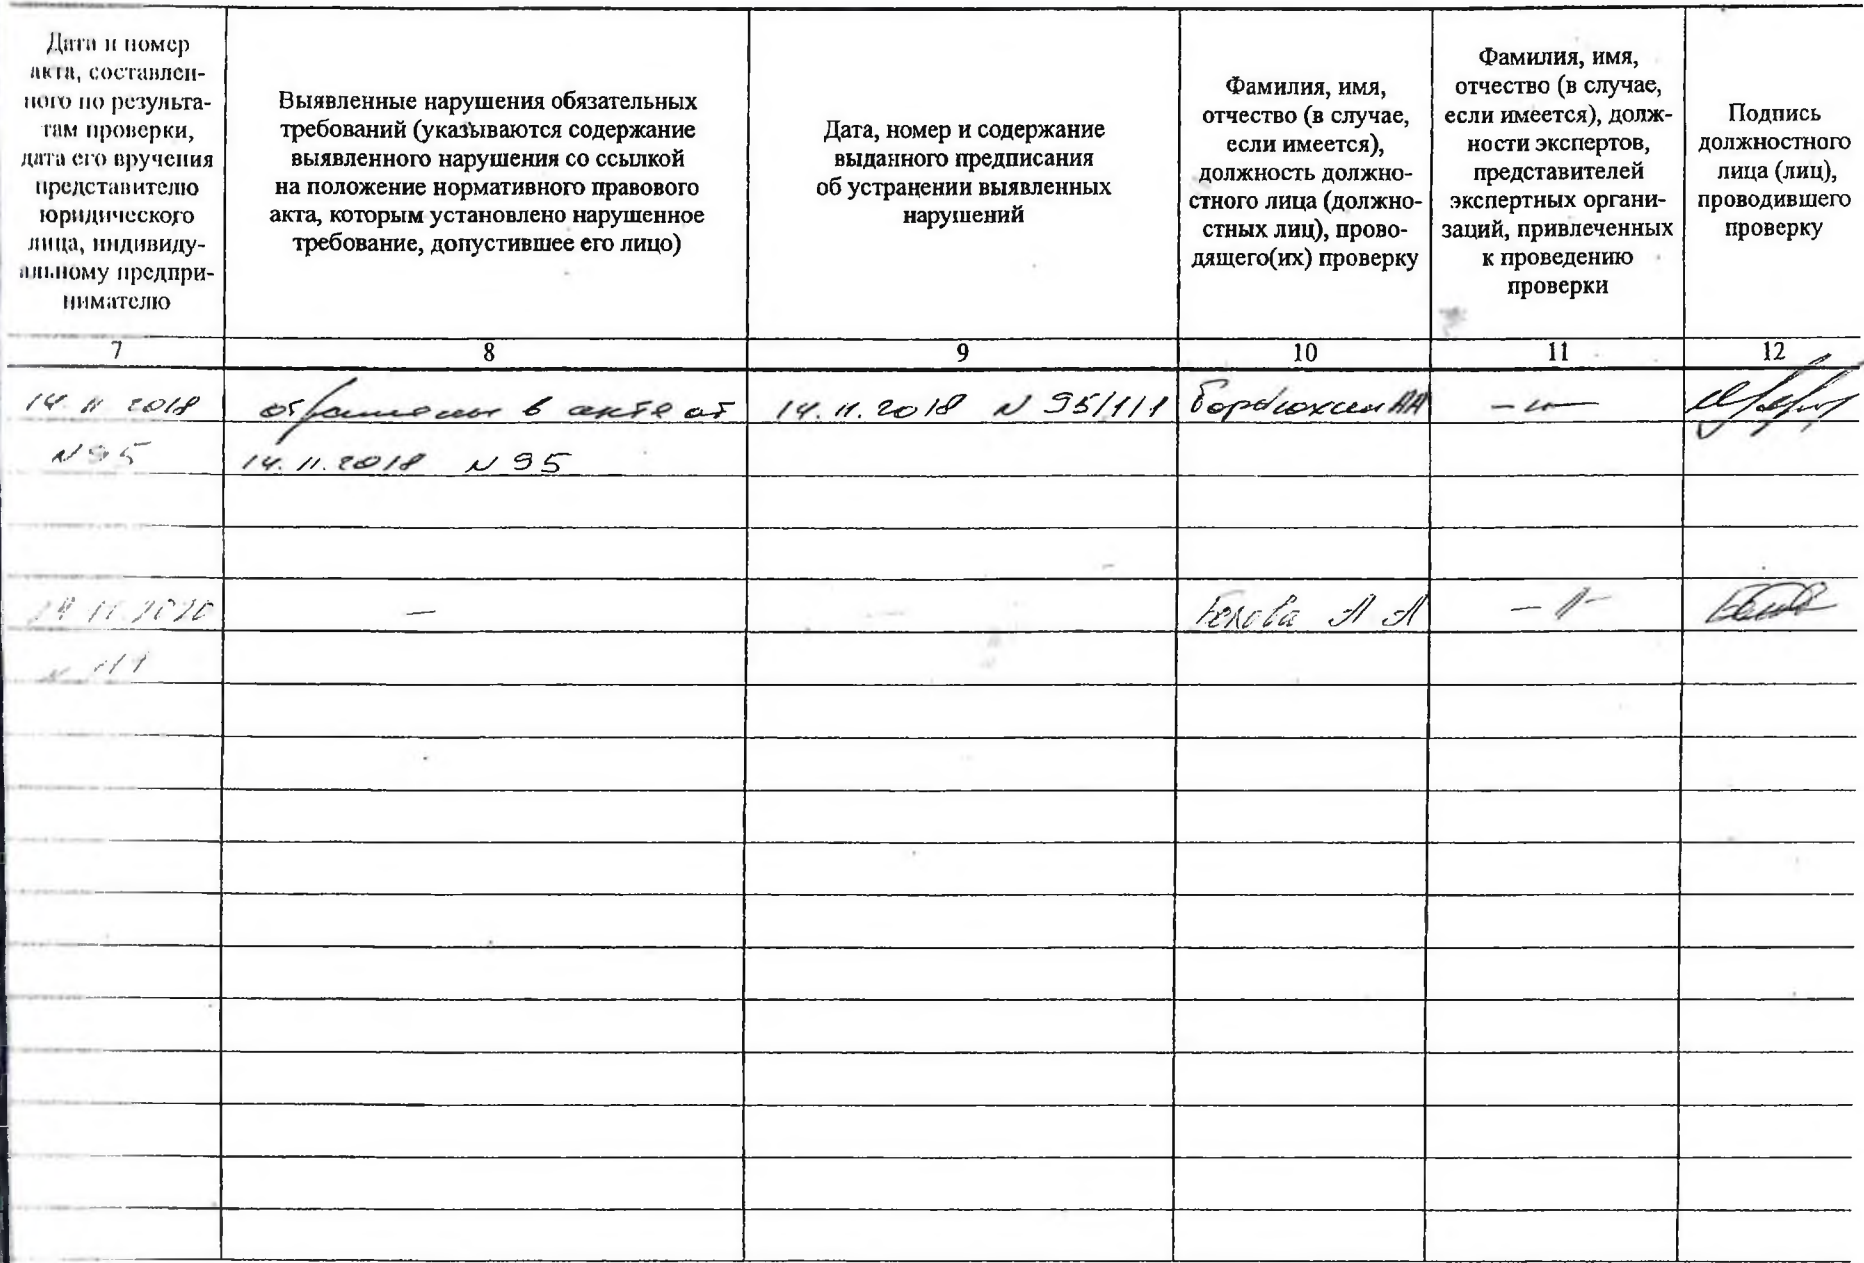 Дата и номер
акта, составлен-
ного по результа-
там проверки,
дата его вручения
представителю
юридического
лица, индивиду-
альному предпри-
нимателю
Выявленные нарушения обязательных
требований (указываются содержание
выявленного нарушения со ссылкой
на положение нормативного правового
акта, которым установлено нарушенное
требование, допустившее его лицо)
Дата, номер и содержание
выданного предписания
об устранении выявленных
нарушений
Фамилия, имя,
отчество (в случае,
если имеется),
должность должно-
стного лица (должно-
стных лиц), прово-
дящего(их) проверку
Фамилия, имя,
отчество (в случае,
если имеется), долж-
ности экспертов,
представителей
экспертных органи-
заций, привлеченных
к проведению
проверки
Подпись
должностного
лица (лиц),
проводившего
проверку
7 8 9 10 11 12
14.11.2018
N 95
отражены в акте от
14.11.2018 N 95
14.11.2018 N 95/1/1
АА
- " -
11.2020
—
Белова А А
- " -